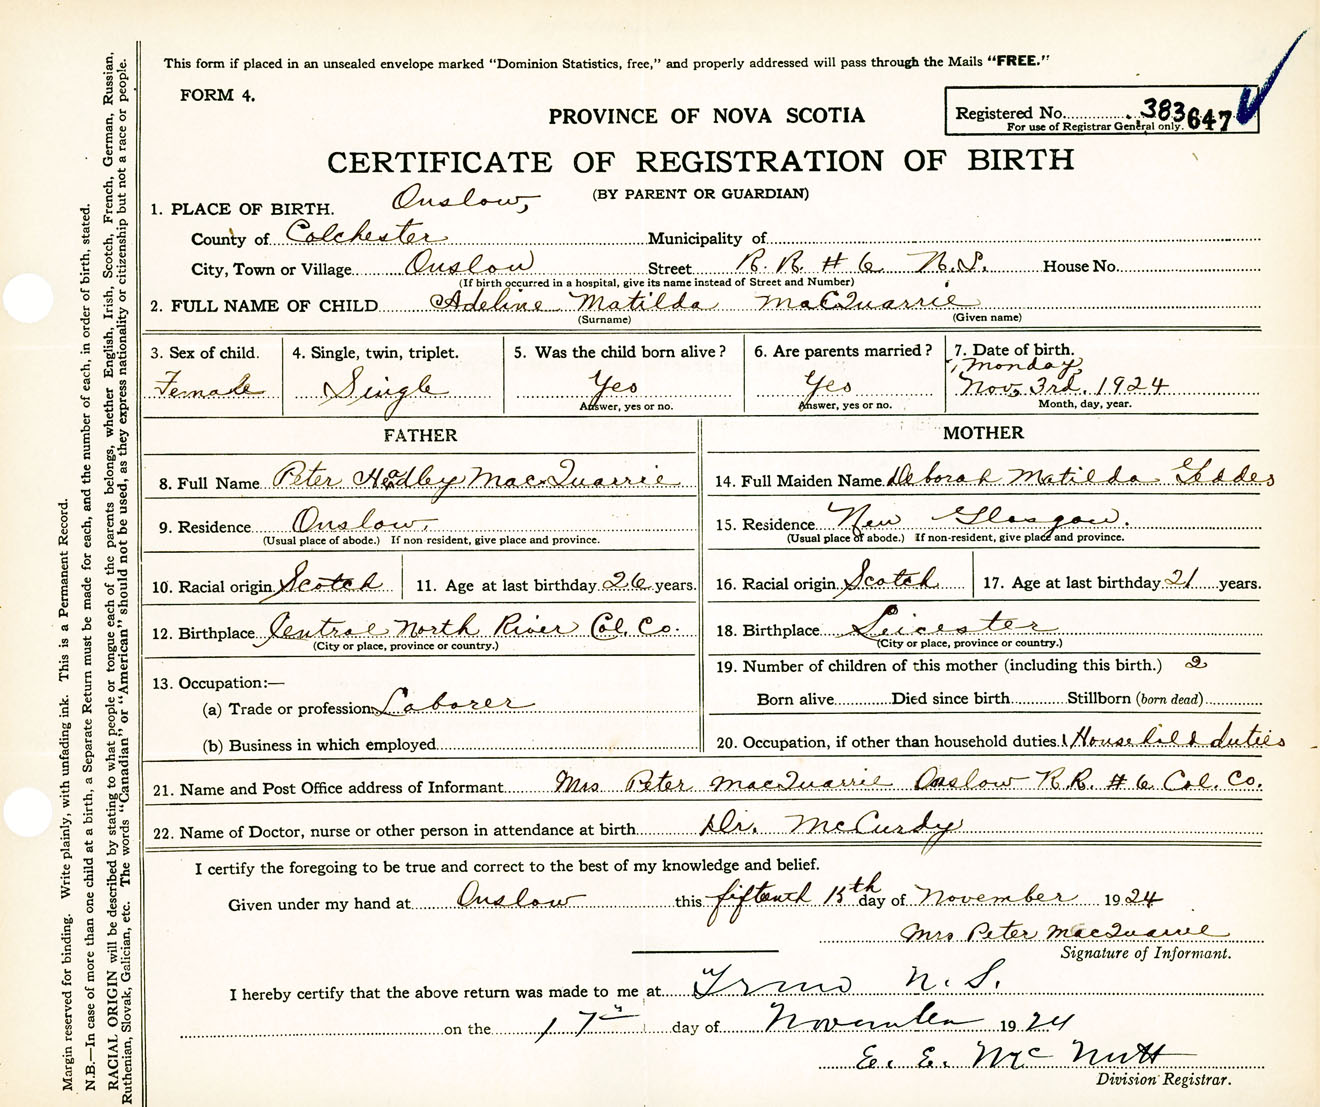 This form if placed in an unsealed envelope marked "Dominion Statistics, free," and properly addressed will pass through the Mails "FREE."
FORM 4.
PROVINCE OF NOVA SCOTIA
Registered No. 383647
For use of Registrar General only.
CERTIFICATE OF REGISTRATION OF BIRTH
(BY PARENT OR GUARDIAN)
1. PLACE OF BIRTH. Onslow,
County of Colchester Municipality of
City, Town or Village Onslow Street R. R. # 6 N.S. House No.
(If birth occurred in a hospital, give its name instead of Street and Number)
2. FULL NAME OF CHILD Adeline Matilda MacQuarrie
(Surname) (Given name)
3. Sex of child. 4. Single, twin, triplet. 5. Was the child born alive? 6. Are parents married? 7. Date of birth.
Monday
Female Single Yes Yes Nov, 3rd. 1924
Answer, yes or no. Answer, yes or no. Month, day, year.
FATHER MOTHER
8. Full Name Peter Hedley MacQuarrie 14. Full Maiden Name Deborah Matilda Geddes
9. Residence Onslow. 15. Residence New Glasgow.
(Usual place of abode.) If non resident, give place and province. (Usual place of abode.) If non-resident, give place and province.
10. Racial origin Scotch 11. Age at last birthday 26 years. 16. Racial origin Scotch 17. Age at last birthday 21 years.
12. Birthplace Central North River Col. Co. 18. Birthplace Leicester
(City or place, province or country.) (City or place, province or country.)
13. Occupation:— 19. Number of children of this mother (including this birth.) 2
(a) Trade or profession Laborer Born alive Died since birth Stillborn (born dead)
(b) Business in which employed 20. Occupation, if other than household duties. Household duties
21. Name and Post Office address of Informant Mrs Peter MacQuarrie Onslow R.R. # 6 Col. Co.
22. Name of Doctor, nurse or other person in attendance at birth Dr. McCurdy
I certify the foregoing to be true and correct to the best of my knowledge and belief.
Given under my hand at Onslow this fifteenth 15th day of November 1924
Mrs Peter MacQuarrie
Signature of Informant.
I hereby certify that the above return was made to me at Truro N. S.
on the 17 day of November 1924
E. E. McNutt
Division Registrar.
Margin reserved for binding. Write plainly, with unfading ink. This is a Permanent Record.
N.B.—In case of more than one child at a birth, a Separate Return must be made for each, and the number of each, in order of birth, stated.
RACIAL ORIGIN will be described by stating to what people or tongue each of the parents belongs, whether English, Irish, Scotch, French, German, Russian,
Ruthenian, Slovak, Galician, etc. The words "Canadian" or "American" should not be used, as they express nationality or citizenship but not a race or people.